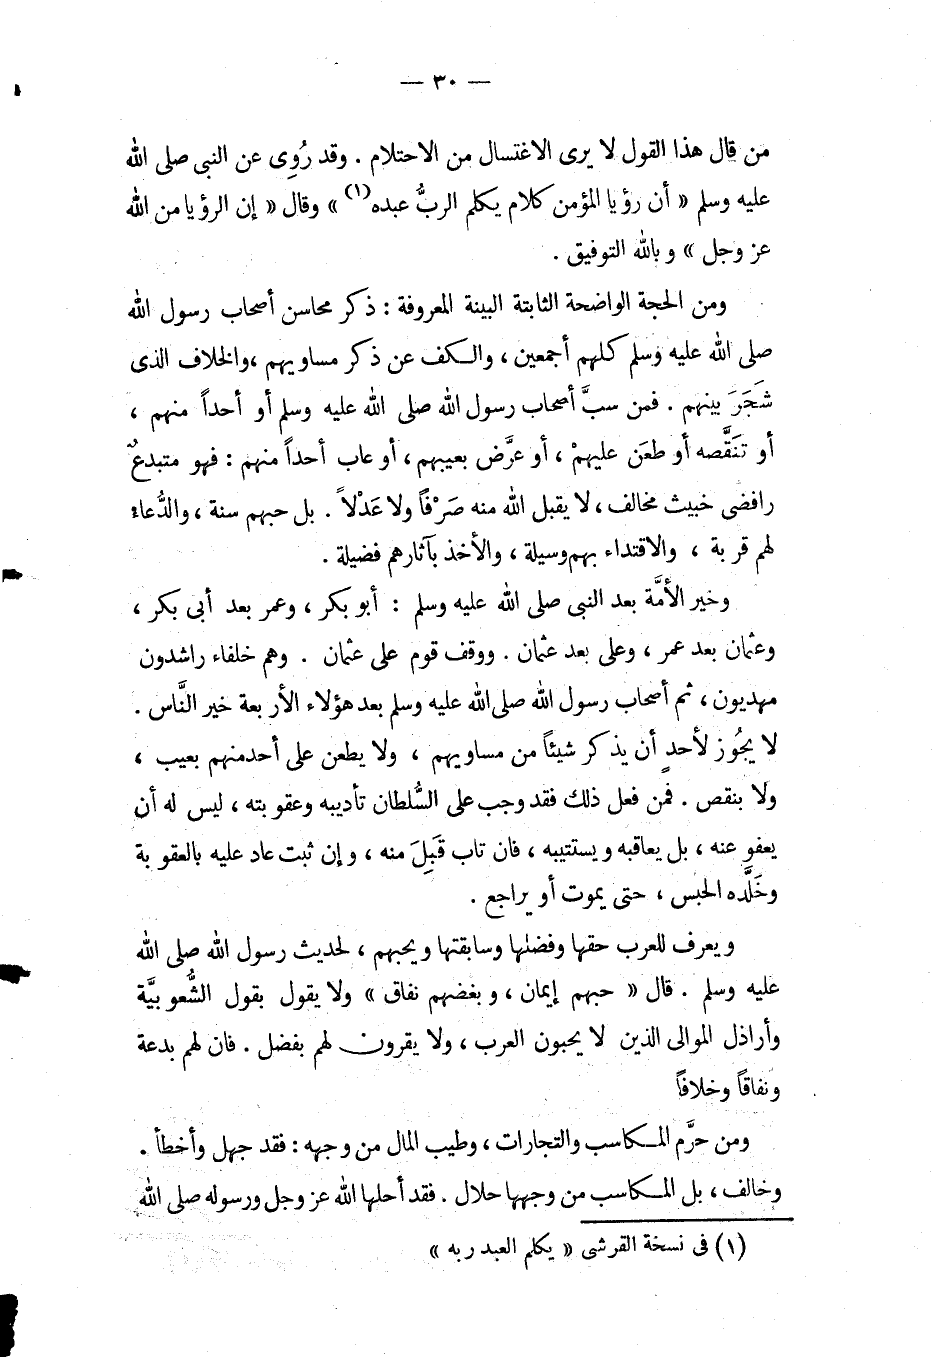 — ٣٠ —
من قال هذا القول لا يرى الاغتسال من الاحتلام . وقد رُوِى عن النبى صلى الله
عليه وسلم « أن رؤيا المؤمن كلام يكلم الربُّ عبده(١) » وقال « إن الرؤيا من الله
عز وجل » وبالله التوفيق .
ومن الحجة الواضحة الثابتة البينة المعروفة : ذكر محاسن أصحاب رسول الله
صلى الله عليه وسلم كلهم أجمعين ، والكف عن ذكر مساويهم ، والخلاف الذى
شَجَرَ بينهم . فمن سبَّ أصحاب رسول الله صلى الله عليه وسلم أو أحداً منهم ،
أو تنَقَّصه أو طعَن عليهمْ ، أو عرَّض بعيبهم ، أو عاب أحداً منهم : فهو متبدعٌ
رافضى خبيث مخالف ، لا يقبل الله منه صَرْفاً ولا عَدْلاً . بل حبهم سنة ، والدُّعاء
لهم قربة ، والاقتداء بهم وسيلة ، والأخذ بآثارهم فضيلة .
وخير الأمَّة بعد النبى صلى الله عليه وسلم : أبو بكر ، وعمر بعد أبى بكر ،
وعثمان بعد عمر ، وعلى بعد عثمان . ووقف قوم على عثمان . وهم خلفاء راشدون
مهديون ، ثم أصحاب رسول الله صلى الله عليه وسلم بعد هؤلاء الأربعة خير النَّاس .
لا يجُوز لأحدٍ أن يذكر شيئاً من مساويهم ، ولا يطعن على أحد منهم بعيب ،
ولا بنقص . فمن فعل ذلك فقد وجب على السُّلطان تأديبه وعقوبته ، ليس له أن
يعفو عنه ، بل يعاقبه ويستتيبه ، فان تاب قَبِلَ منه ، وإن ثبت عاد عليه بالعقوبة
وخَلَّده الحبس ، حتى يموت أو يراجع .
ويعرف للعرب حقها وفضلها وسابقتها ويحبهم ، لحديث رسول الله صلى الله
عليه وسلم . قال « حبهم إيمان ، وبغضهم نفاق » ولا يقول بقول الشُّعوبيَّة
وأراذل الموالى الذين لا يحبون العرب ، ولا يقرون لهم بفضل . فان لهم بدعة
ونفاقاً وخلافاً
ومن حرَّم المكاسب والتجارات ، وطيب المال من وجهه : فقد جهل وأخطأ .
وخالف ، بل المكاسب من وجهها حلال . فقد أحلها الله عز وجل ورسوله صلى الله
(١) فى نسخة القرشى « يكلم العبد ربه »